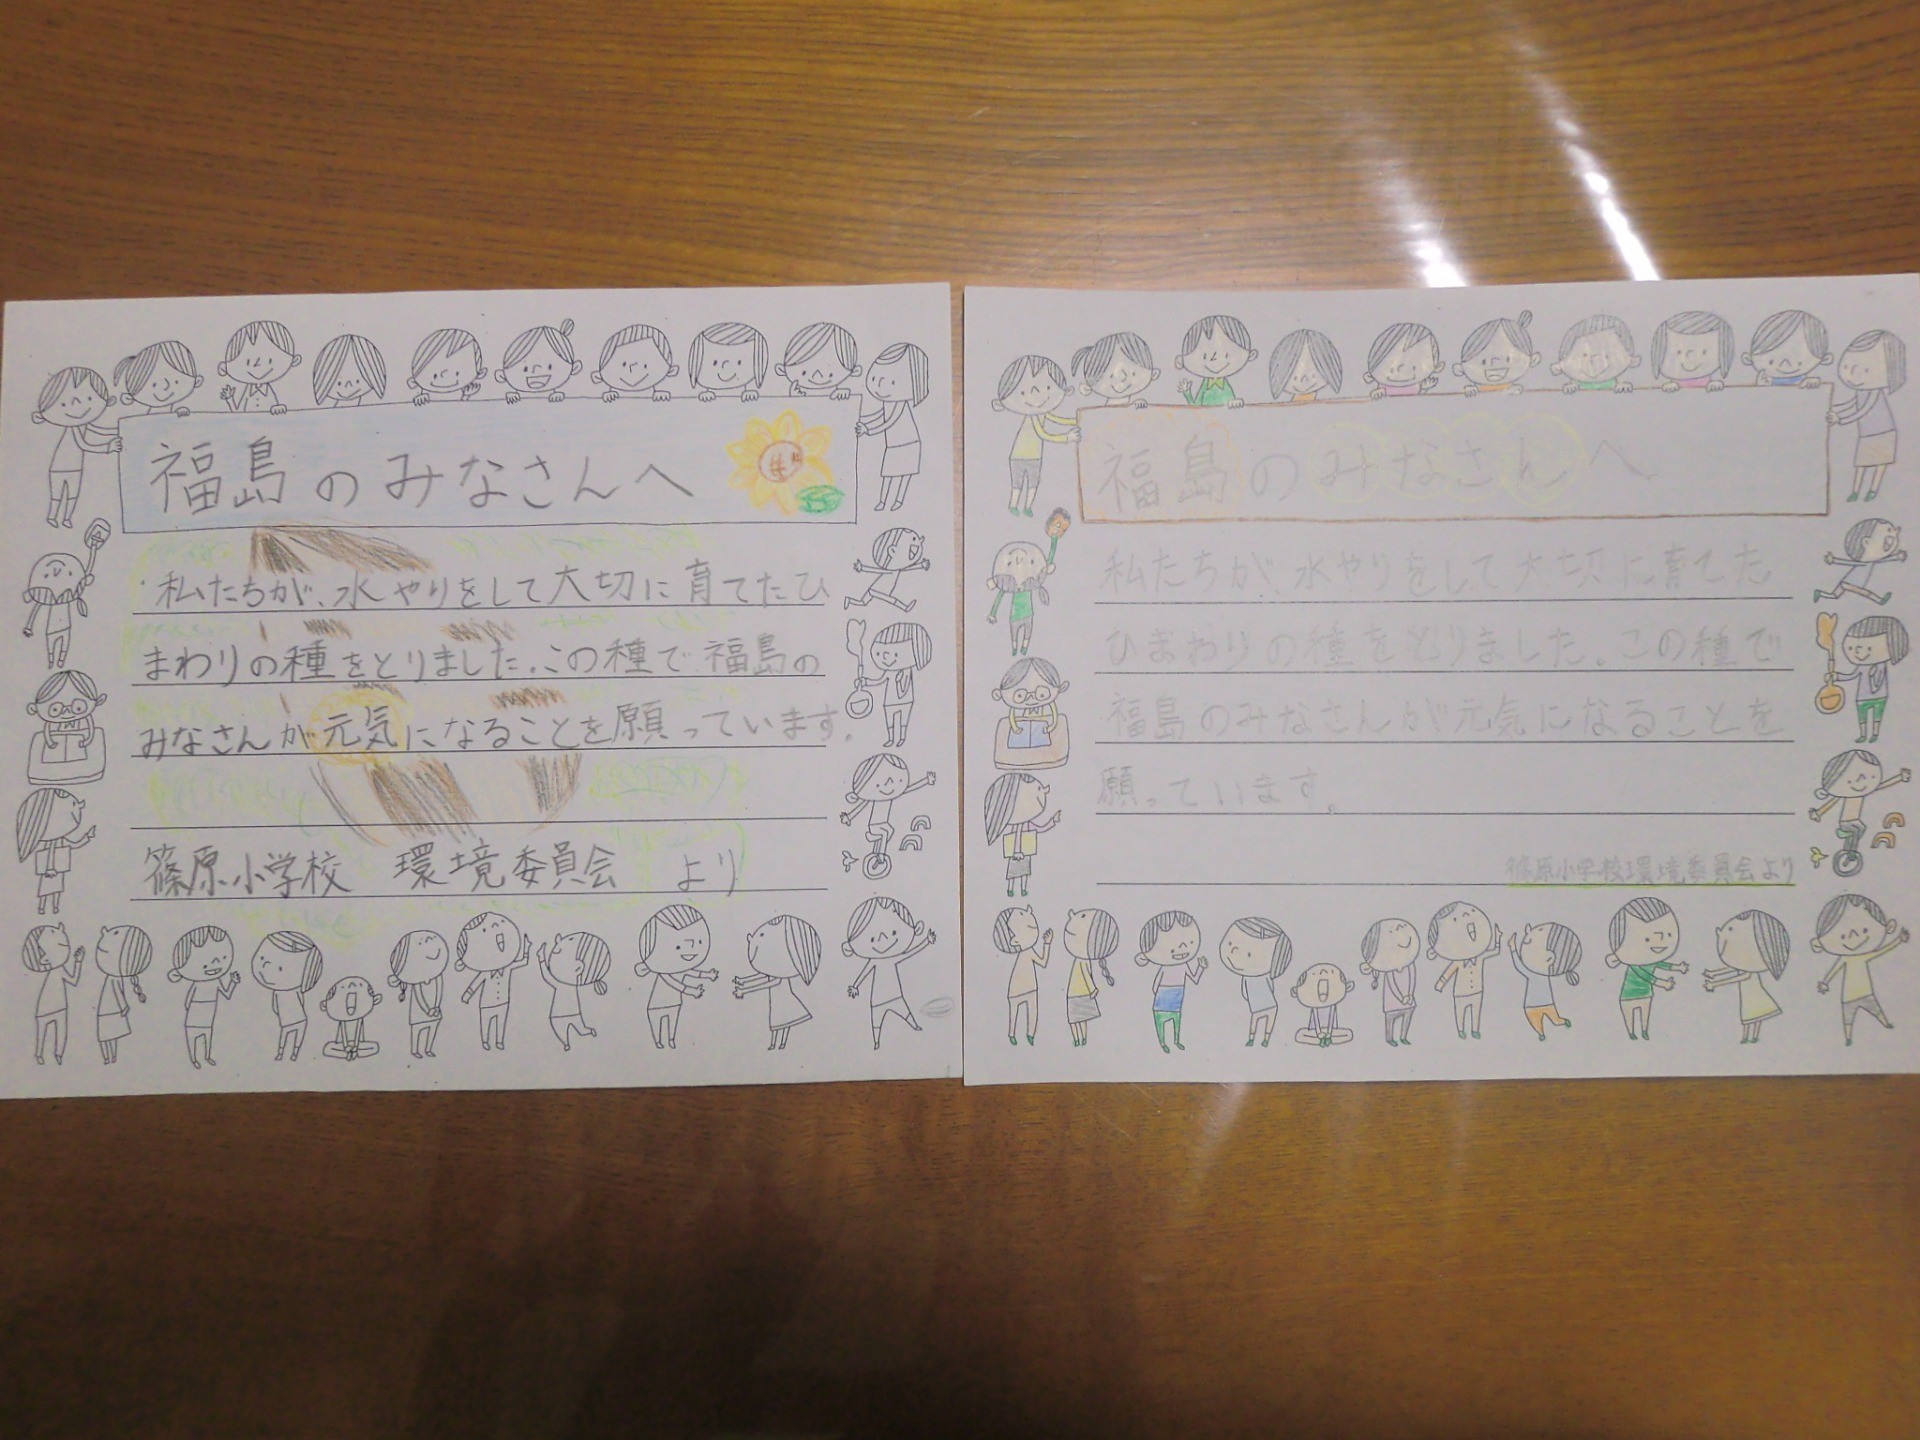 福島のみなさんへ
私たちが、水やりをして大切に育てたひ
まわりの種をとりました。この種で福島の
みなさんが元気になることを願っています。
篠原小学校 環境委員会 より
福島のみなさんへ
私たちが、水やりをして大切に育てた
ひまわりの種をとりました。この種で
福島のみなさんが元気になることを
願っています。
篠原小学校環境委員会より